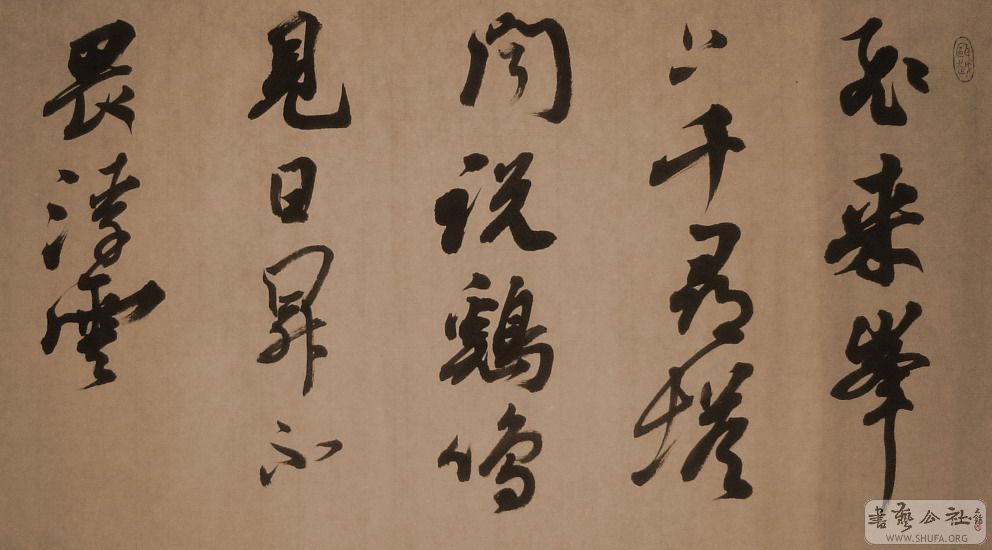 飛來峯
上千尋塔
聞說鷄鳴
見日昇不
畏浮雲
書藝公社
WWW.SHUFA.ORG